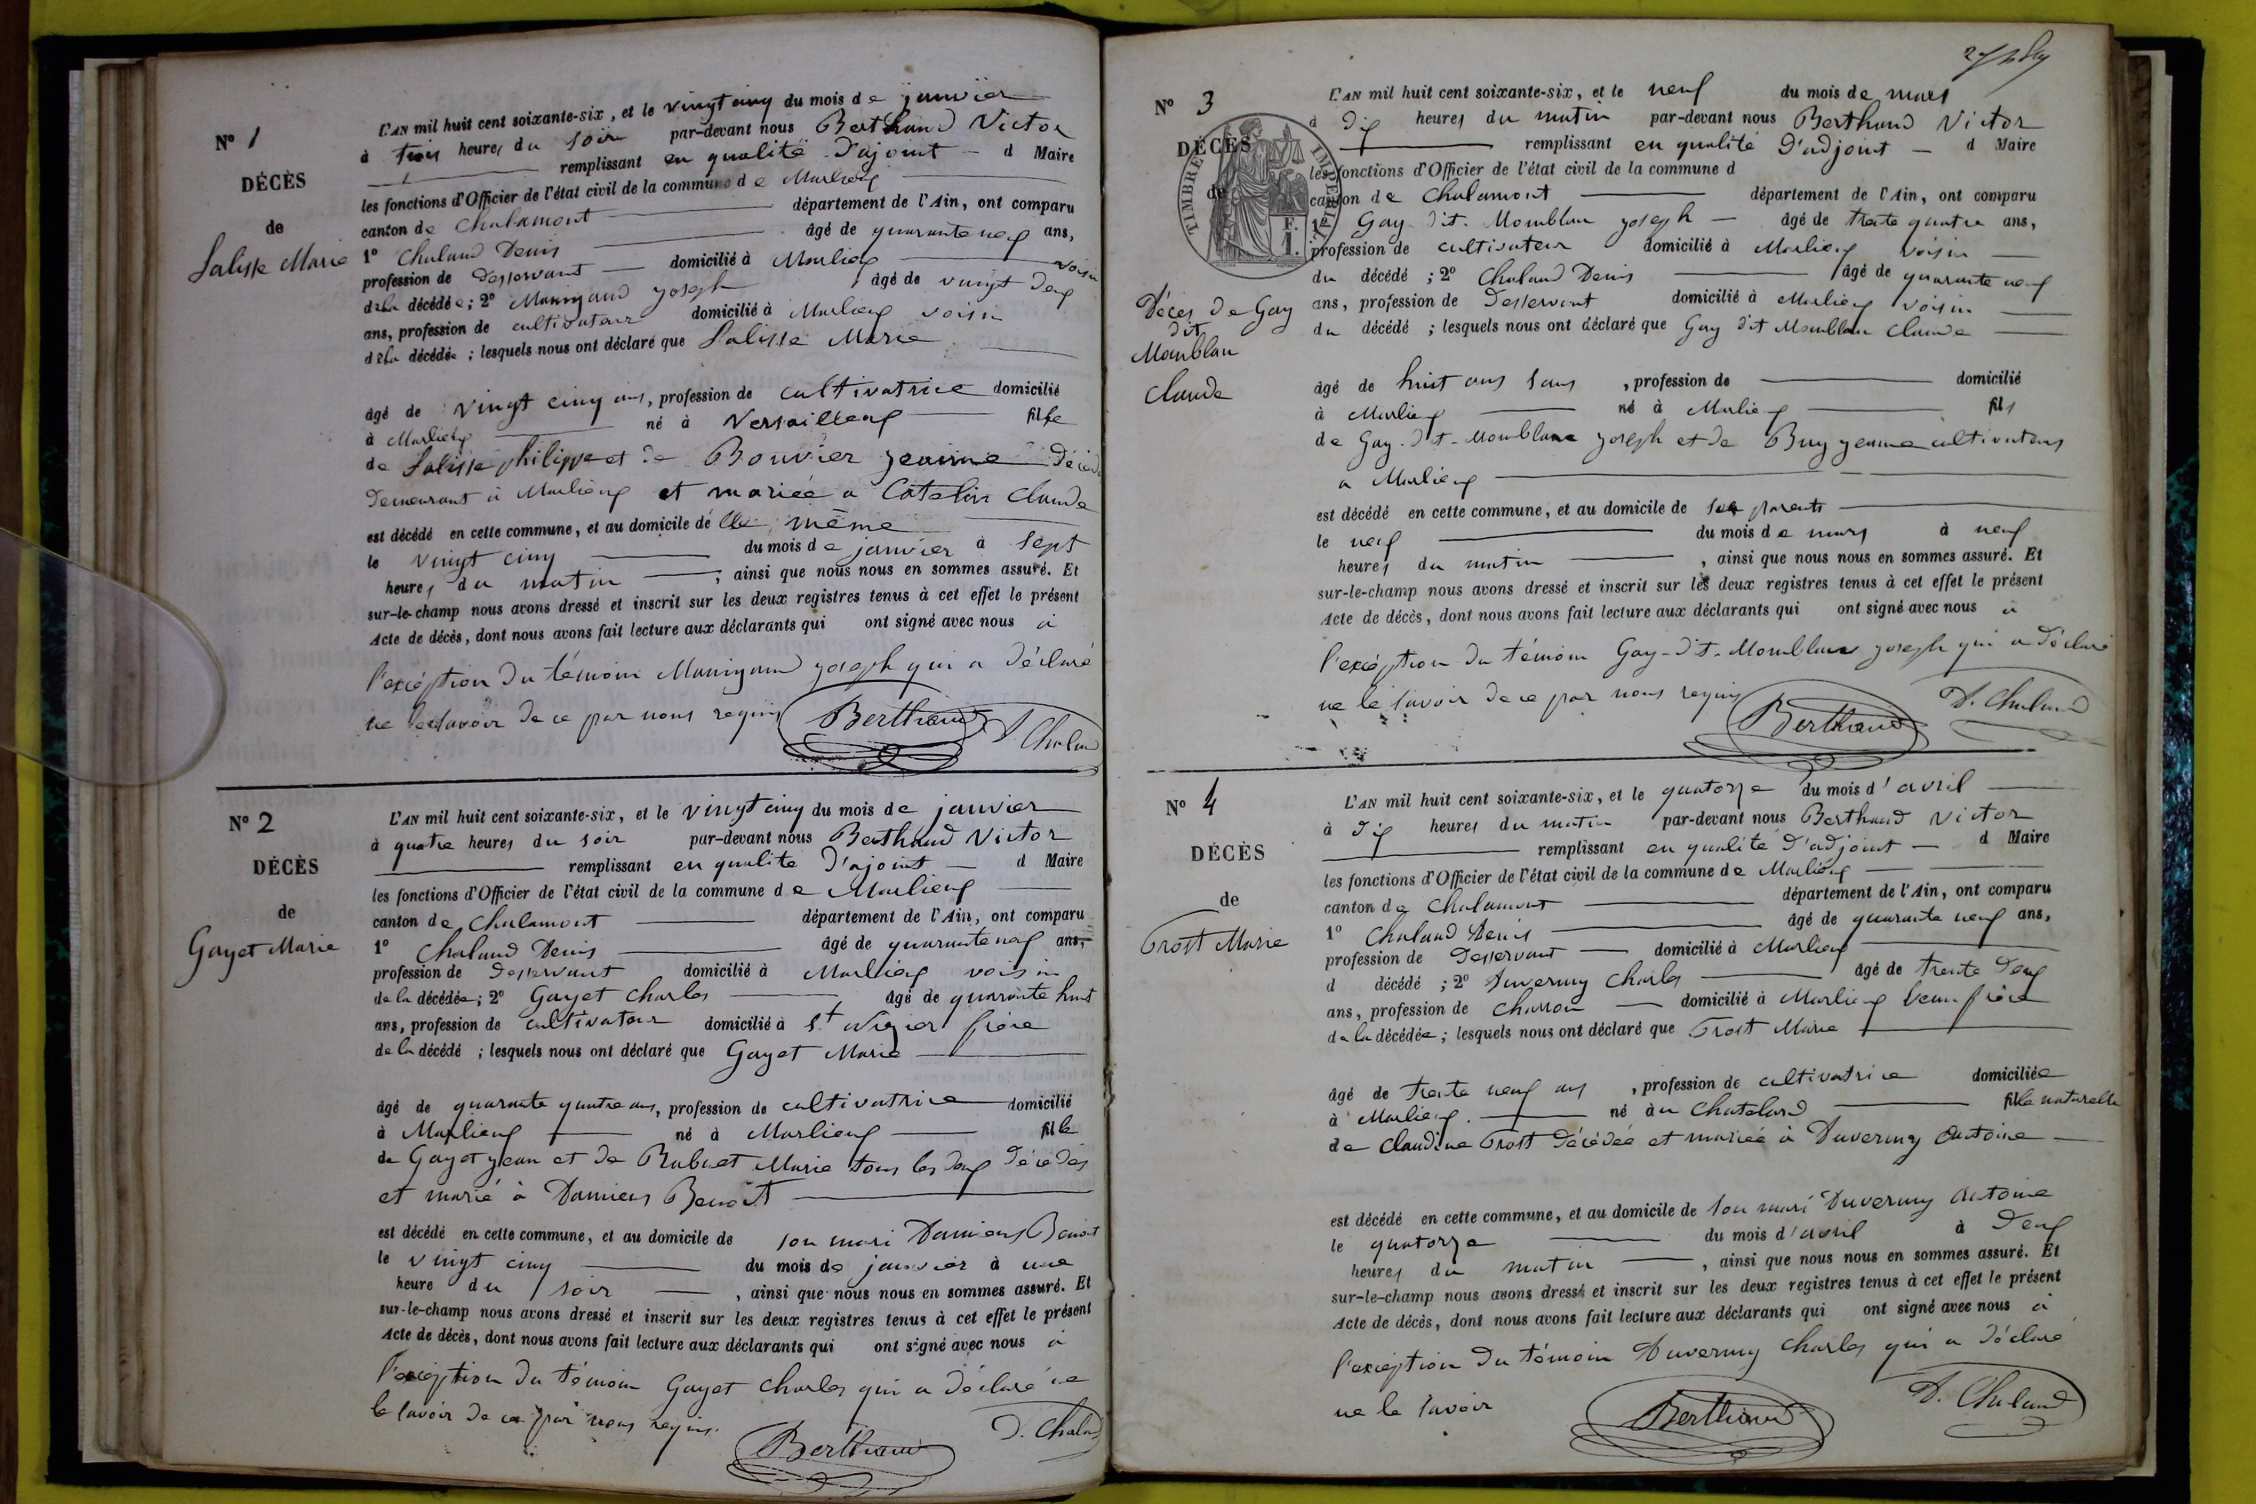 N° 1
DÉCÈS
de
Salisse Marie
L'AN mil huit cent soixante-six, et le vingt cinq du mois de janvier
à trois heures du soir par-devant nous Berthaud Victor
remplissant en qualité d'ajoint d Maire
les fonctions d'Officier de l'état civil de la commune de Marlieux
canton de Chalamont département de l'Ain, ont comparu
1° Chaland Denis âgé de quarante neuf ans,
profession de desservant domicilié à Marlieux voisin
de la décédée; 2° Manigand joseph âgé de vingt deux
ans, profession de cultivateur domicilié à Marlieux voisin
de la décédée; lesquels nous ont déclaré que Salisse Marie
âgé de vingt cinq ans, profession de cultivatrice domicilié
à Marlieux né à Versailleux fille
de Salisse philippe et de Bouvier jeanne
demeurant à Marlieux et mariée a Catelin Claude
est décédé en cette commune, et au domicile de elle même
le vingt cinq du mois de janvier à sept
heures du matin, ainsi que nous nous en sommes assuré. Et
sur-le-champ nous avons dressé et inscrit sur les deux registres tenus à cet effet le présent
Acte de décès, dont nous avons fait lecture aux déclarants qui ont signé avec nous à
l'exception du témoin Manigand joseph qui a déclaré
ne le savoir de ce par nous requis
Berthaud D. Chaland
N° 2
DÉCÈS
de
Gayet Marie
L'AN mil huit cent soixante-six, et le vingt cinq du mois de janvier
à quatre heures du soir par-devant nous Berthaud Victor
remplissant en qualité d'ajoint d Maire
les fonctions d'Officier de l'état civil de la commune de Marlieux
canton de Chalamont département de l'Ain, ont comparu
1° Chaland Denis âgé de quarante neuf ans,
profession de desservant domicilié à Marlieux voisin
de la décédée; 2° Gayet Charles âgé de quarante huit
ans, profession de cultivateur domicilié à St Nizier frère
de la décédé; lesquels nous ont déclaré que Gayet Marie
âgé de quarante quatre ans, profession de cultivatrice domicilié
à Marlieux né à Marlieux fille
de Gayet jean et de Rubuet Marie tous les deux décédés
et marié à Damiens Benoit
est décédé en cette commune, et au domicile de son mari Damiens Benoit
le vingt cinq du mois de janvier à une
heure du soir, ainsi que nous nous en sommes assuré. Et
sur-le-champ nous avons dressé et inscrit sur les deux registres tenus à cet effet le présent
Acte de décès, dont nous avons fait lecture aux déclarants qui ont signé avec nous à
l'exception du témoin Gayet Charles qui a déclaré ne
le savoir de ce par nous requis.
Berthaud D. Chaland
N° 3
DÉCÈS
de
TIMBRE IMPERIAL
F. 1.
Décès de Gay
dit
Momblan
Claude
L'AN mil huit cent soixante-six, et le neuf du mois de mars
à dix heures du matin par-devant nous Berthaud Victor
remplissant en qualité d'adjoint d Maire
les fonctions d'Officier de l'état civil de la commune d
canton de Chalamont département de l'Ain, ont comparu
1° Gay-dit-Momblan joseph âgé de trente quatre ans,
profession de cultivateur domicilié à Marlieux voisin
du décédé; 2° Chaland Denis âgé de quarante neuf
ans, profession de desservant domicilié à Marlieux voisin
du décédé; lesquels nous ont déclaré que Gay dit Momblan Claude
âgé de huit ans sans, profession de domicilié
à Marlieux né à Marlieux fils
de Gay-dit-Momblan joseph et de Buy jeanne cultivateurs
a Marlieux
est décédé en cette commune, et au domicile de ses parents
le neuf du mois de mars à neuf
heures du matin, ainsi que nous nous en sommes assuré. Et
sur-le-champ nous avons dressé et inscrit sur les deux registres tenus à cet effet le présent
Acte de décès, dont nous avons fait lecture aux déclarants qui ont signé avec nous à
l'exception du témoin Gay-dit-Momblan joseph qui a déclaré
ne le savoir de ce par nous requis
Berthaud D. Chaland
N° 4
DÉCÈS
de
Trost Marie
L'AN mil huit cent soixante-six, et le quatorze du mois d'avril
à dix heures du matin par-devant nous Berthaud Victor
remplissant en qualité d'adjoint d Maire
les fonctions d'Officier de l'état civil de la commune de Marlieux
canton de Chalamont département de l'Ain, ont comparu
1° Chaland Denis âgé de quarante neuf ans,
profession de desservant domicilié à Marlieux
d décédé; 2° Duvernay Charles âgé de trente deux
ans, profession de charron domicilié à Marlieux beau frère
de la décédée; lesquels nous ont déclaré que Trost Marie
âgé de trente neuf ans, profession de cultivatrice domiciliée
à Marlieux né au Chatelard fille naturelle
de Claudine Trost décédée et mariée à Duvernay Antoine
est décédé en cette commune, et au domicile de son mari Duvernay Antoine
le quatorze du mois d'avril à deux
heures du matin, ainsi que nous nous en sommes assuré. Et
sur-le-champ nous avons dressé et inscrit sur les deux registres tenus à cet effet le présent
Acte de décès, dont nous avons fait lecture aux déclarants qui ont signé avec nous à
l'exception du témoin Duvernay Charles qui a déclaré
ne le savoir
Berthaud D. Chaland